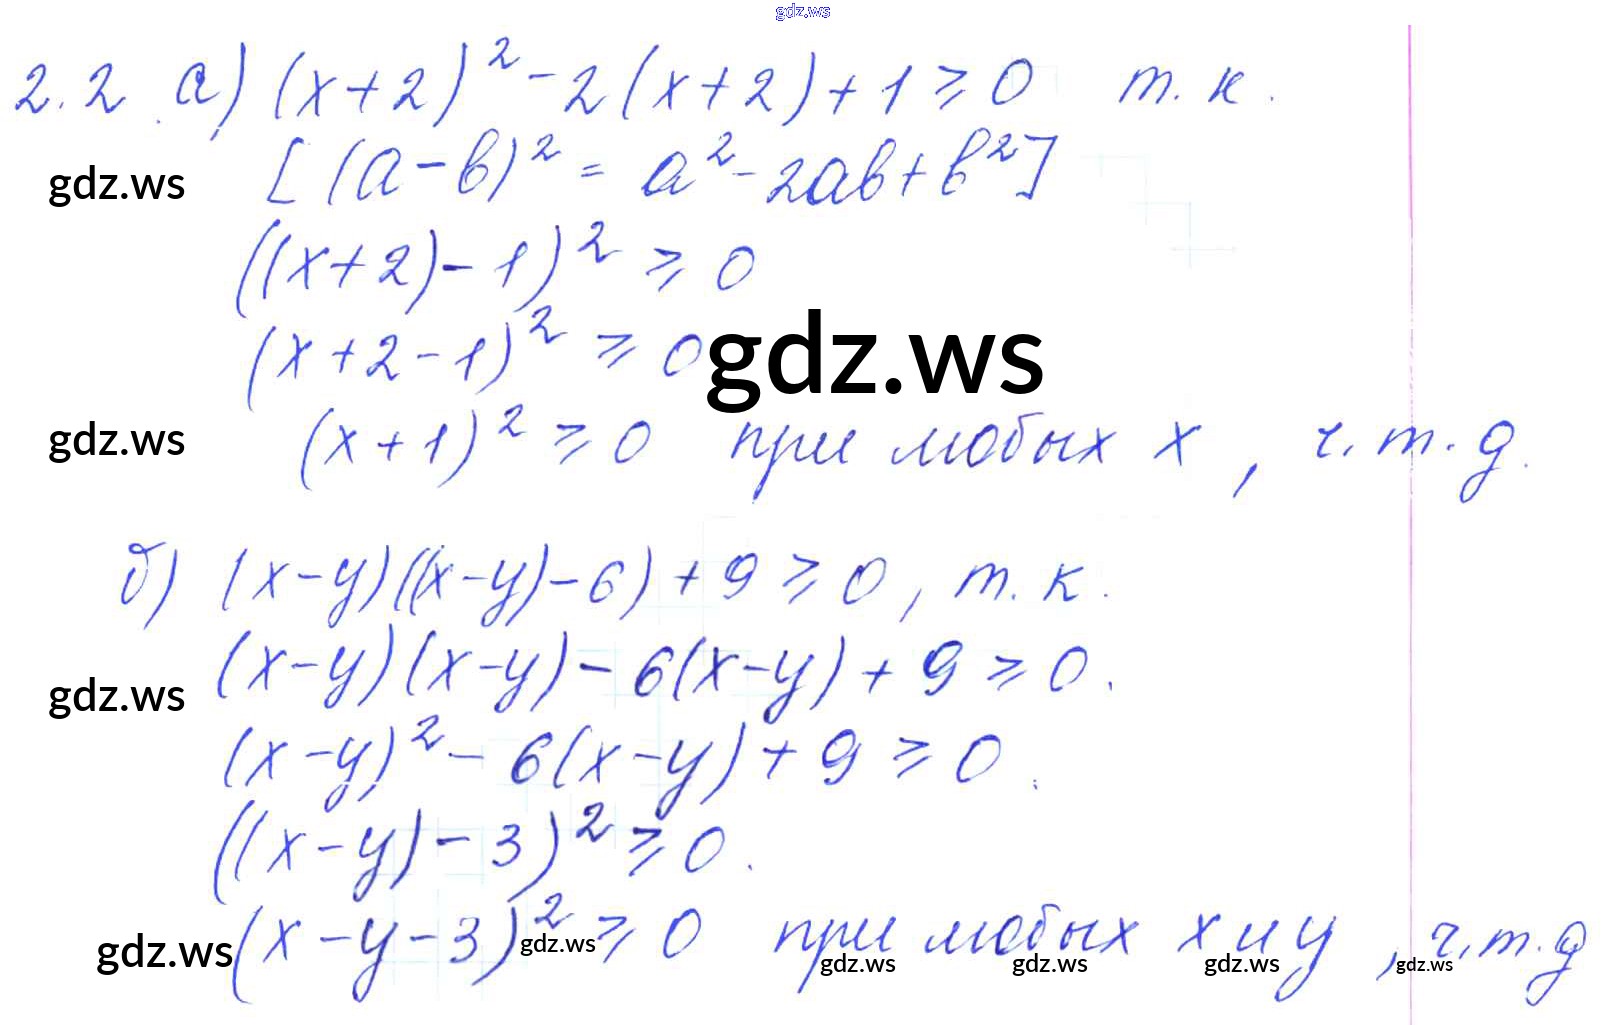 gdz.ws
2.2. а) (x+2)² - 2(x+2) + 1 ≥ 0 т.к.
gdz.ws [(a-b)² = a² - 2ab + b²]
((x+2) - 1)² ≥ 0
(x+2-1)² ≥ 0 gdz.ws
gdz.ws (x+1)² ≥ 0 при любых x, ч.т.д.
б) (x-y)((x-y)-6) + 9 ≥ 0, т.к.
gdz.ws (x-y)(x-y) - 6(x-y) + 9 ≥ 0.
(x-y)² - 6(x-y) + 9 ≥ 0.
((x-y) - 3)² ≥ 0.
gdz.ws (x-y-3)² ≥ 0 при любых x и y, ч.т.д
gdz.ws gdz.ws gdz.ws gdz.ws gdz.ws